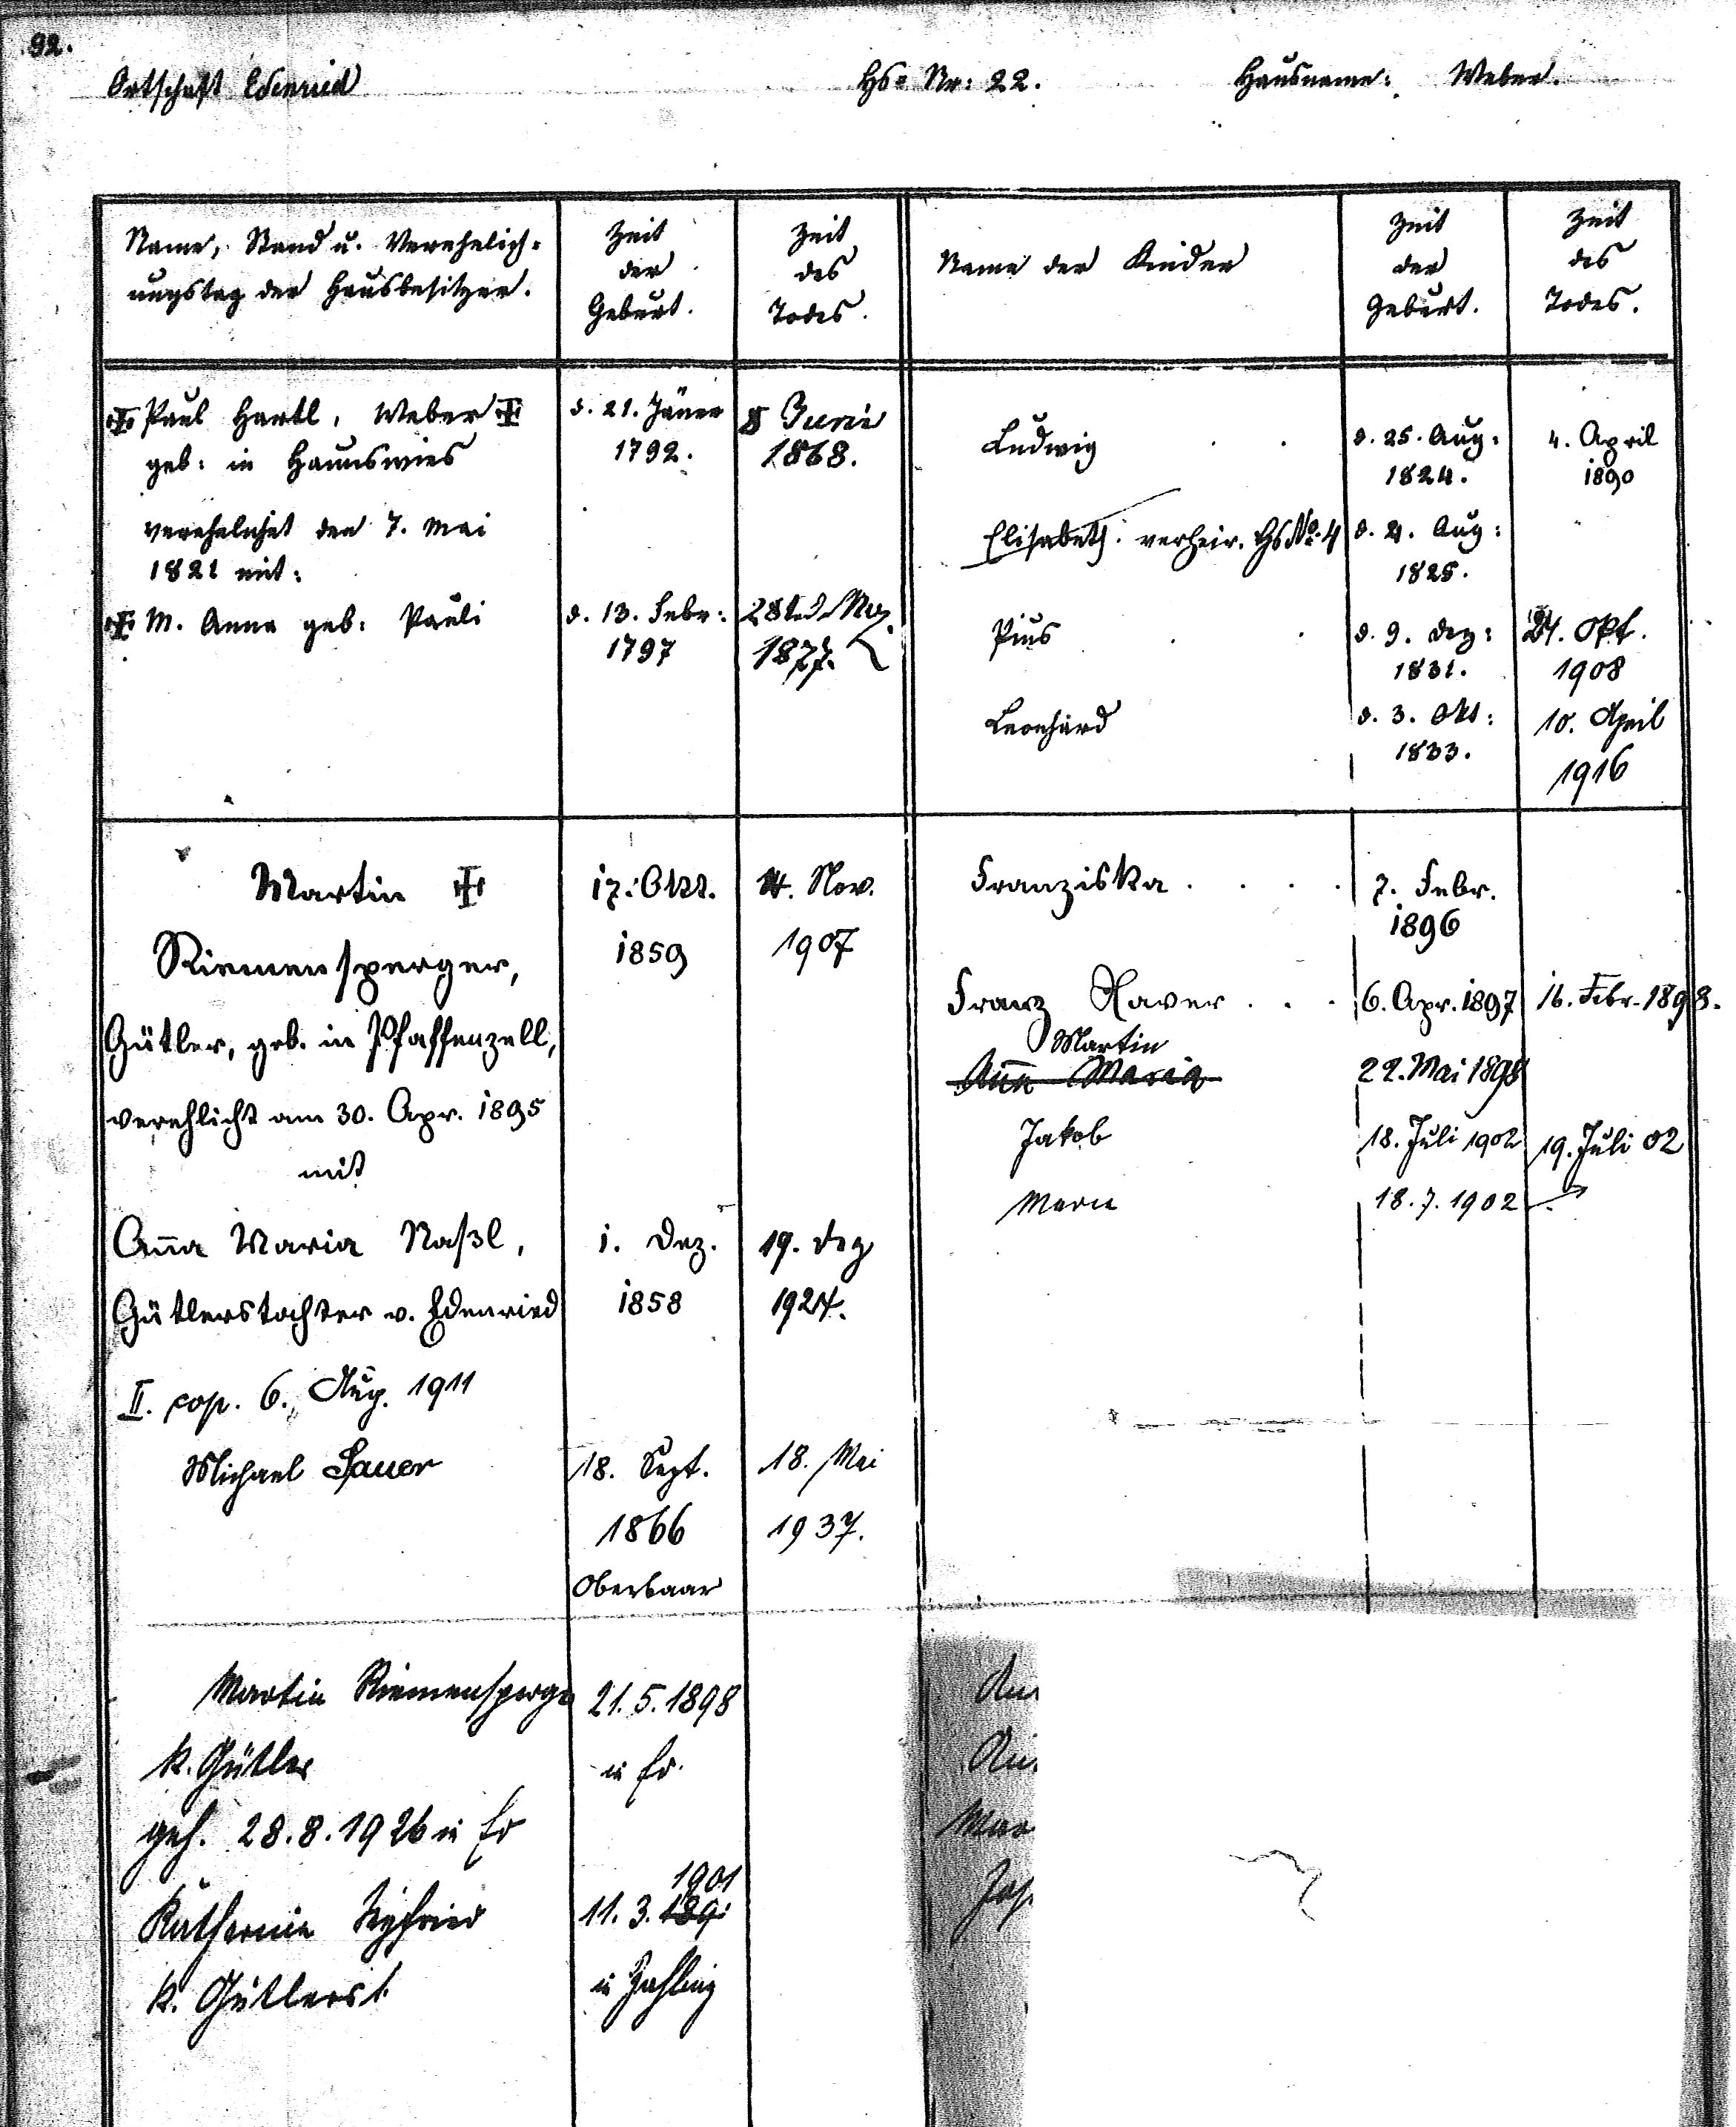 92.
Ortschaft Edenried Hs: Nr: 22. Hausname: Weber.
Name, Stand u. Verehelich-
ungstag der Hausbesitzer.
Zeit
der
Geburt.
Zeit
des
Todes.
Name der Kinder
Zeit
der
Geburt.
Zeit
des
Todes.
Paul Hartl, Weber
geb: in Haunswies
verehelichet den 7. Mai
1821 mit:
d. 21. Jäner
1792.
8 Juni
1868.
M. Anna geb: Pauli
d. 13. Febr:
1797
1877.
Ludwig
d. 25. Aug:
1824.
4. April
1890
Elisabeth: verheir. Hs No. 4
Aug:
1825.
Pius
d. 9. Dez:
1831.
Okt.
1908
Leonhard
d. 3. Okt:
1833.
10. April
1916
Martin
Riemensperger,
Gütler, geb. in Pfaffenzell,
verehlicht am 30. Apr. 1895
mit
17. Okt.
1859
Nov.
1907
Anna Maria Naßl,
Gütlerstochter v. Edenried
1. Dez.
1858
19. Dez
1924.
II. cop. 6. Aug. 1911
Michael Sauer
18. Sept.
1866
Oberbaar
18. Mai
1937.
Franziska . . . .
7. Febr.
1896
Franz Xaver . . . 6. Apr. 1897 16. Febr. 1898.
Martin
Anna Maria 22. Mai 1898
Jakob 18. Juli 1902 19. Juli 02
18. 7. 1902
Martin Riemensperger 21. 5. 1898
k. Gütler in Ed.
geh. 28. 8. 1926 in Ed
1901
11. 3.
k. Gütlerst.